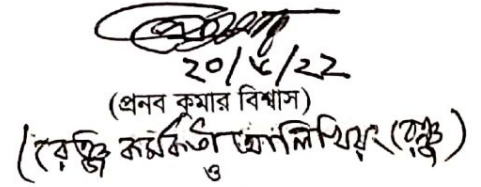 ২০/৮/২২
(প্রনব কুমার বিশ্বাস)
(রেঞ্জ কর্মকর্তা আলিখিয়ং রেঞ্জ)
ও